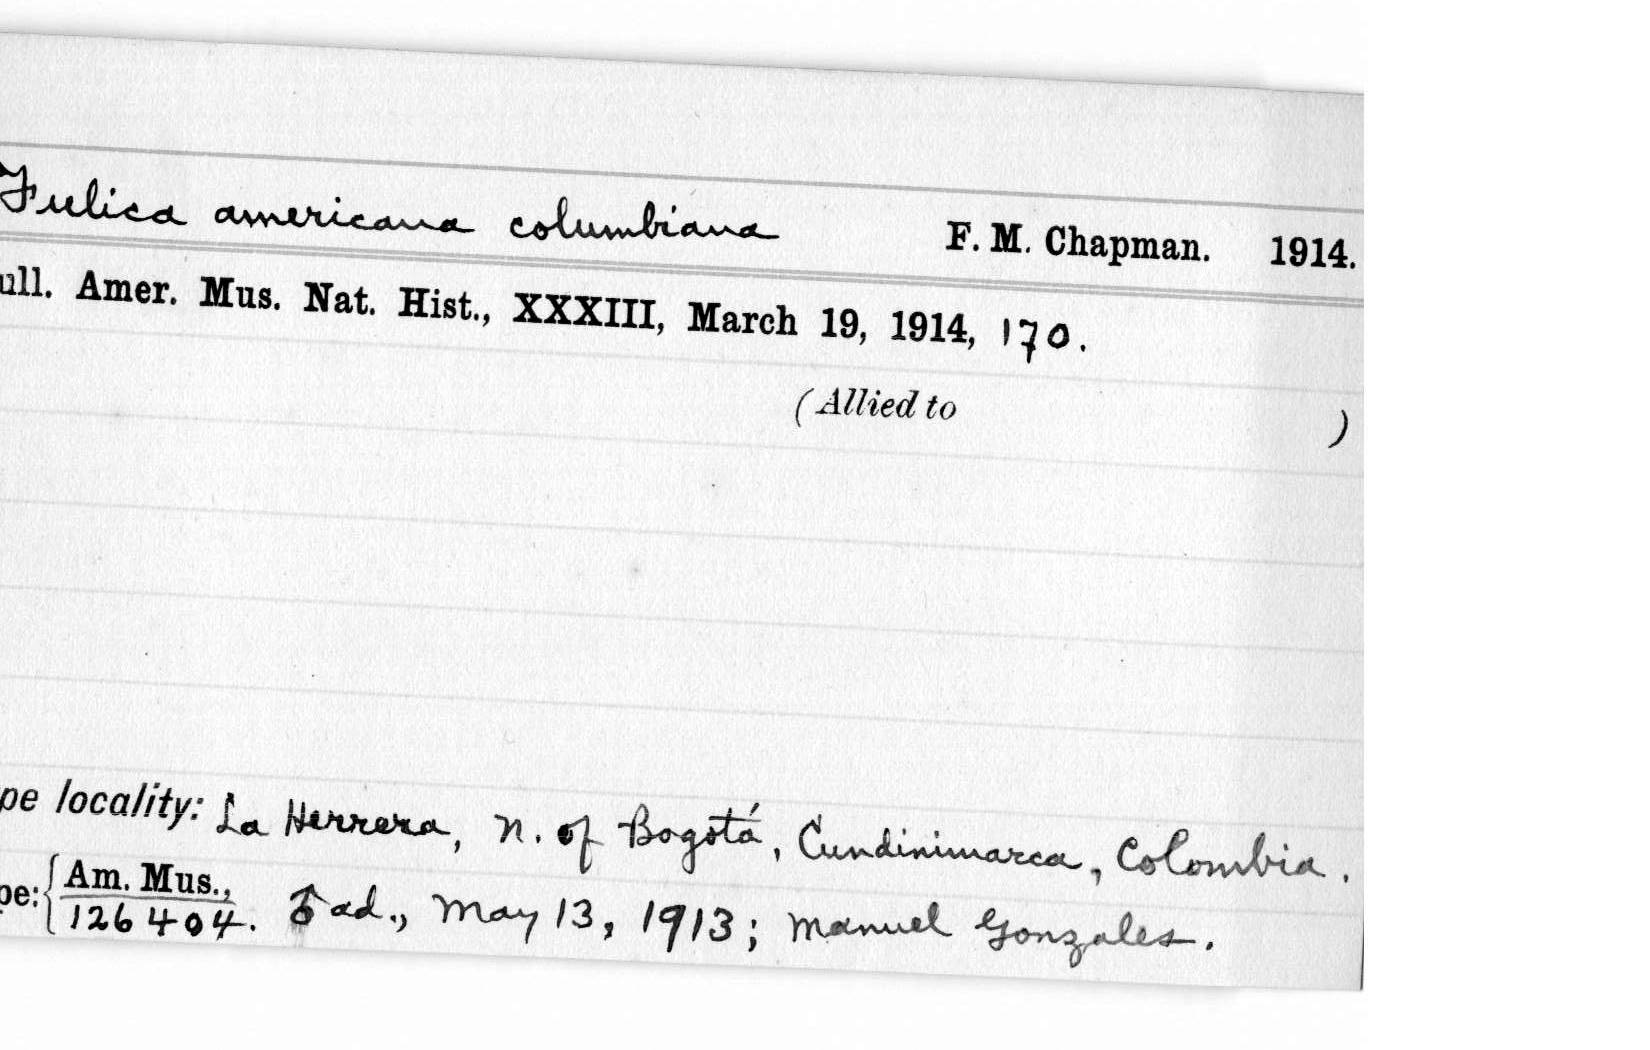 Fulica americana columbiana F. M. Chapman. 1914.
ull. Amer. Mus. Nat. Hist., XXXIII, March 19, 1914, 170.
(Allied to )
pe locality: La Herrera, n. of Bogotá, Cundinimarca, Colombia.
pe: { Am. Mus.,
126404. ♂ ad., May 13, 1913; Manuel Gonzales.